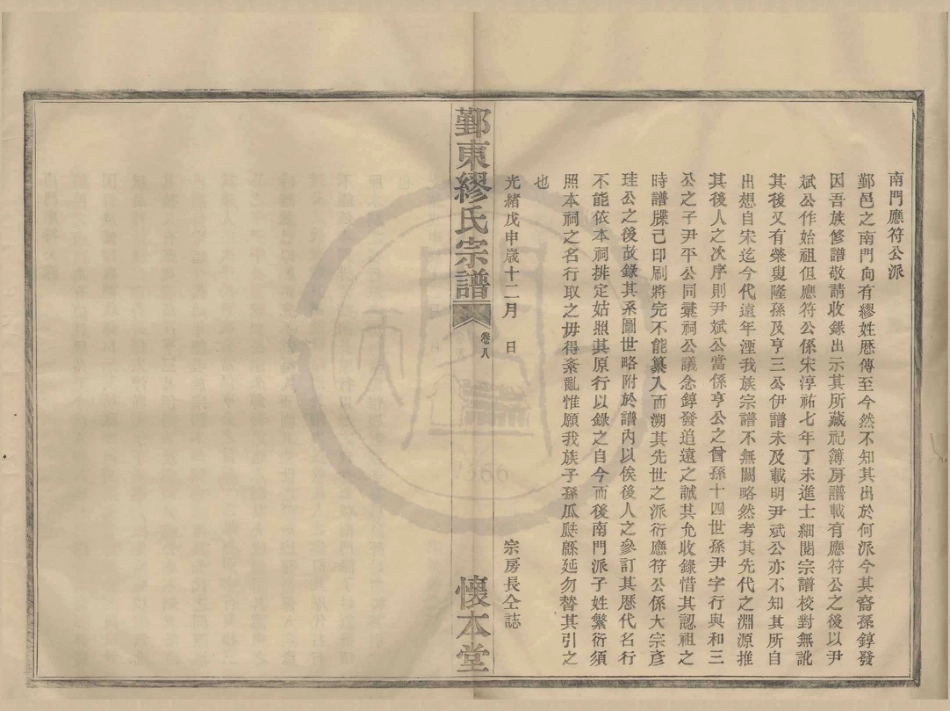 南門應符公派
鄞邑之南門向有繆姓歷傳至今然不知其出於何派今其裔孫錞發
因吾族修譜敬請收錄出示其所藏祀簿房譜載有應符公之後以尹
斌公作始祖但應符公係宋淳祐七年丁未進士細閱宗譜校對無訛
其後又有榮叟隆孫及亨三公伊譜未及載明尹斌公亦不知其所自
出想自宋迄今代遠年湮我族宗譜不無闕略然考其先代之淵源推
其後人之次序則尹斌公當係亨公之曾孫十四世孫尹字行與和三
公之子尹平公同彙祠公議念錞發追遠之誠其允收錄惜其認祖之
時譜牒已印刷將完不能纂入而溯其先世之派衍應符公係大宗彥
珪公之後故錄其系圖世略附於譜內以俟後人之參訂其歷代名行
不能依本祠排定姑照其原行以錄之自今而後南門派子姓繁衍須
照本祠之名行取之毋得紊亂惟願我族子孫瓜瓞緜延勿替其引之
也
光緒戊申歲十二月 日 宗房長仝誌
鄞東繆氏宗譜 卷八 懷本堂
1666